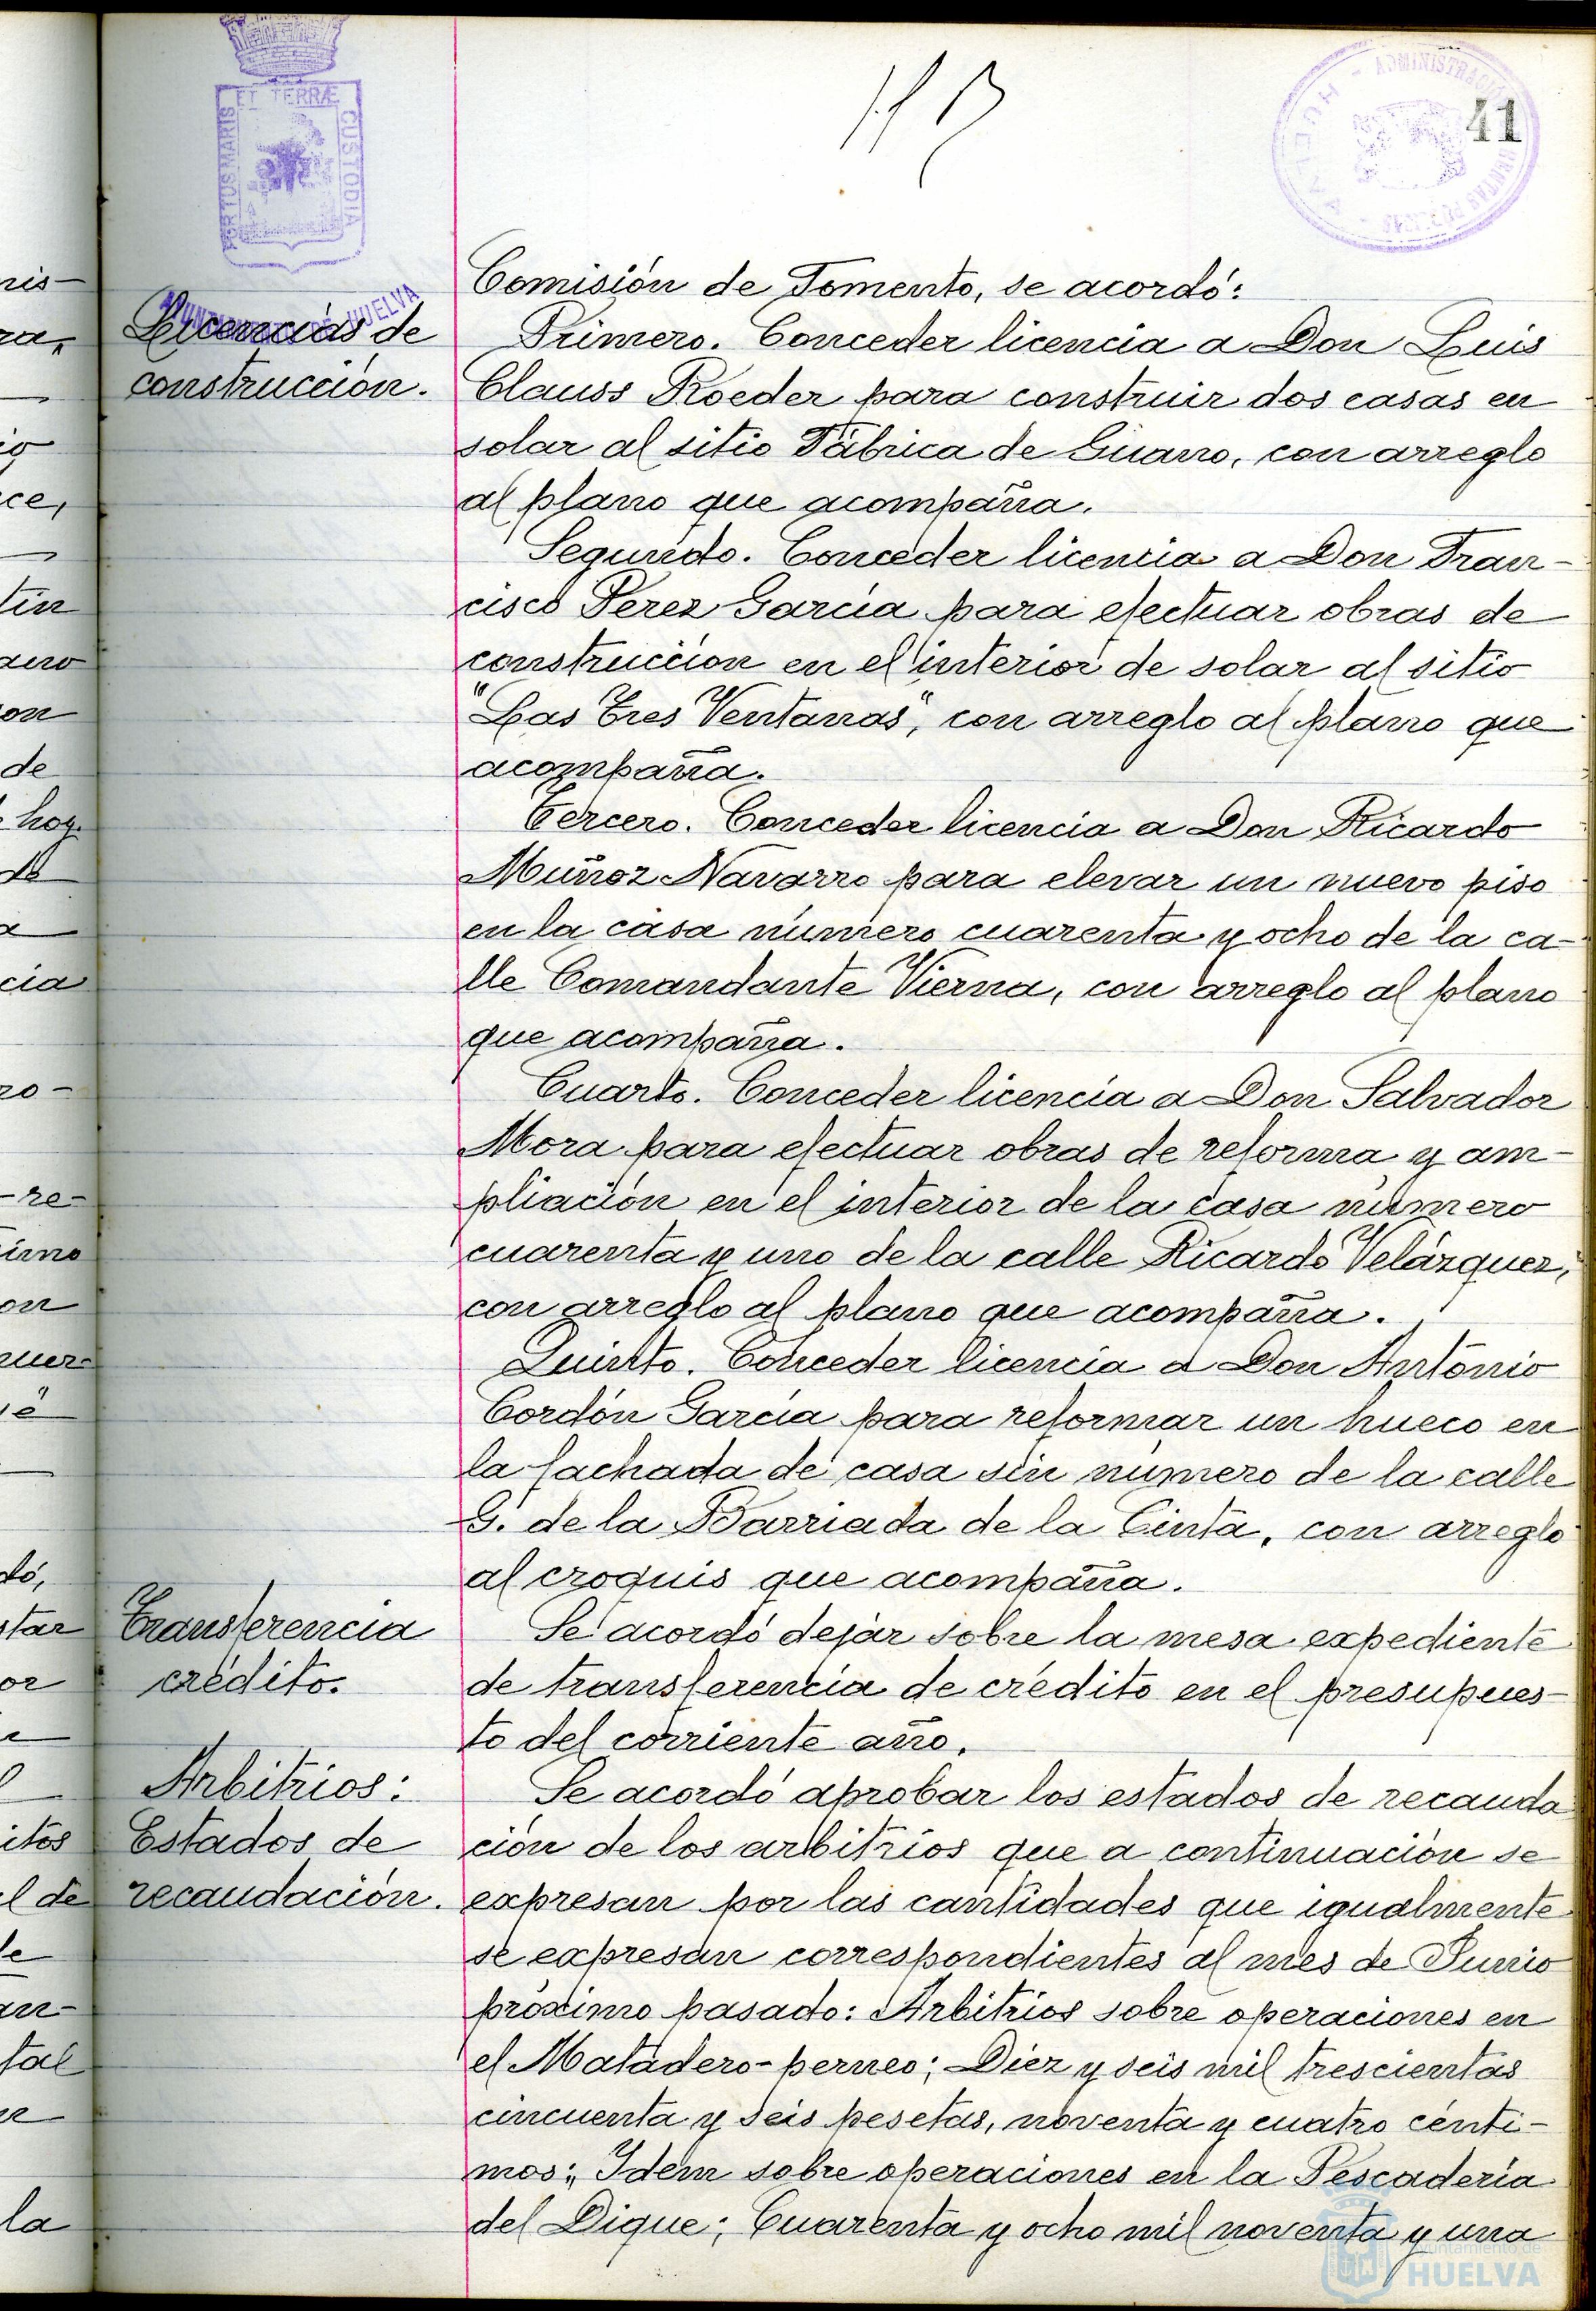 41
ET TERRÆ
PORTUS MARIS
CUSTODIA
AYUNTAMIENTO DE HUELVA
Comisión de Fomento, se acordó:
Licencias de
construcción.
Primero. Conceder licencia a Don Luis
Clauss Roeder para construir dos casas en
solar al sitio Fábrica de Guano, con arreglo
al plano que acompaña.
Segundo. Conceder licencia a Don Fran-
cisco Perez García para efectuar obras de
construcción en el interior de solar al sitio
"Las Tres Ventanas", con arreglo al plano que
acompaña.
Tercero. Conceder licencia a Don Ricardo
Muñoz Navarro para elevar un nuevo piso
en la casa número cuarenta y ocho de la ca-
lle Comandante Vierna, con arreglo al plano
que acompaña.
Cuarto. Conceder licencia a Don Salvador
Mora para efectuar obras de reforma y am-
pliación en el interior de la casa número
cuarenta y uno de la calle Ricardo Velázquez,
con arreglo al plano que acompaña.
Quinto. Conceder licencia a Don Antonio
Cordón García para reformar un hueco en
la fachada de casa sin número de la calle
G. de la Barriada de la Cinta, con arreglo
al croquis que acompaña.
Transferencia
crédito.
Se acordó dejar sobre la mesa expediente
de transferencia de crédito en el presupues-
to del corriente año.
Arbitrios:
Estados de
recaudación.
Se acordó aprobar los estados de recauda
ción de los arbitrios que a continuación se
expresan por las cantidades que igualmente
se expresan correspondientes al mes de Junio
próximo pasado: Arbitrios sobre operaciones en
el Matadero-perneo; Diez y seis mil trescientas
cincuenta y seis pesetas, noventa y cuatro cénti-
mos; Idem sobre operaciones en la Pescadería
del Dique; Cuarenta y ocho mil noventa y una
Ayuntamiento de
HUELVA